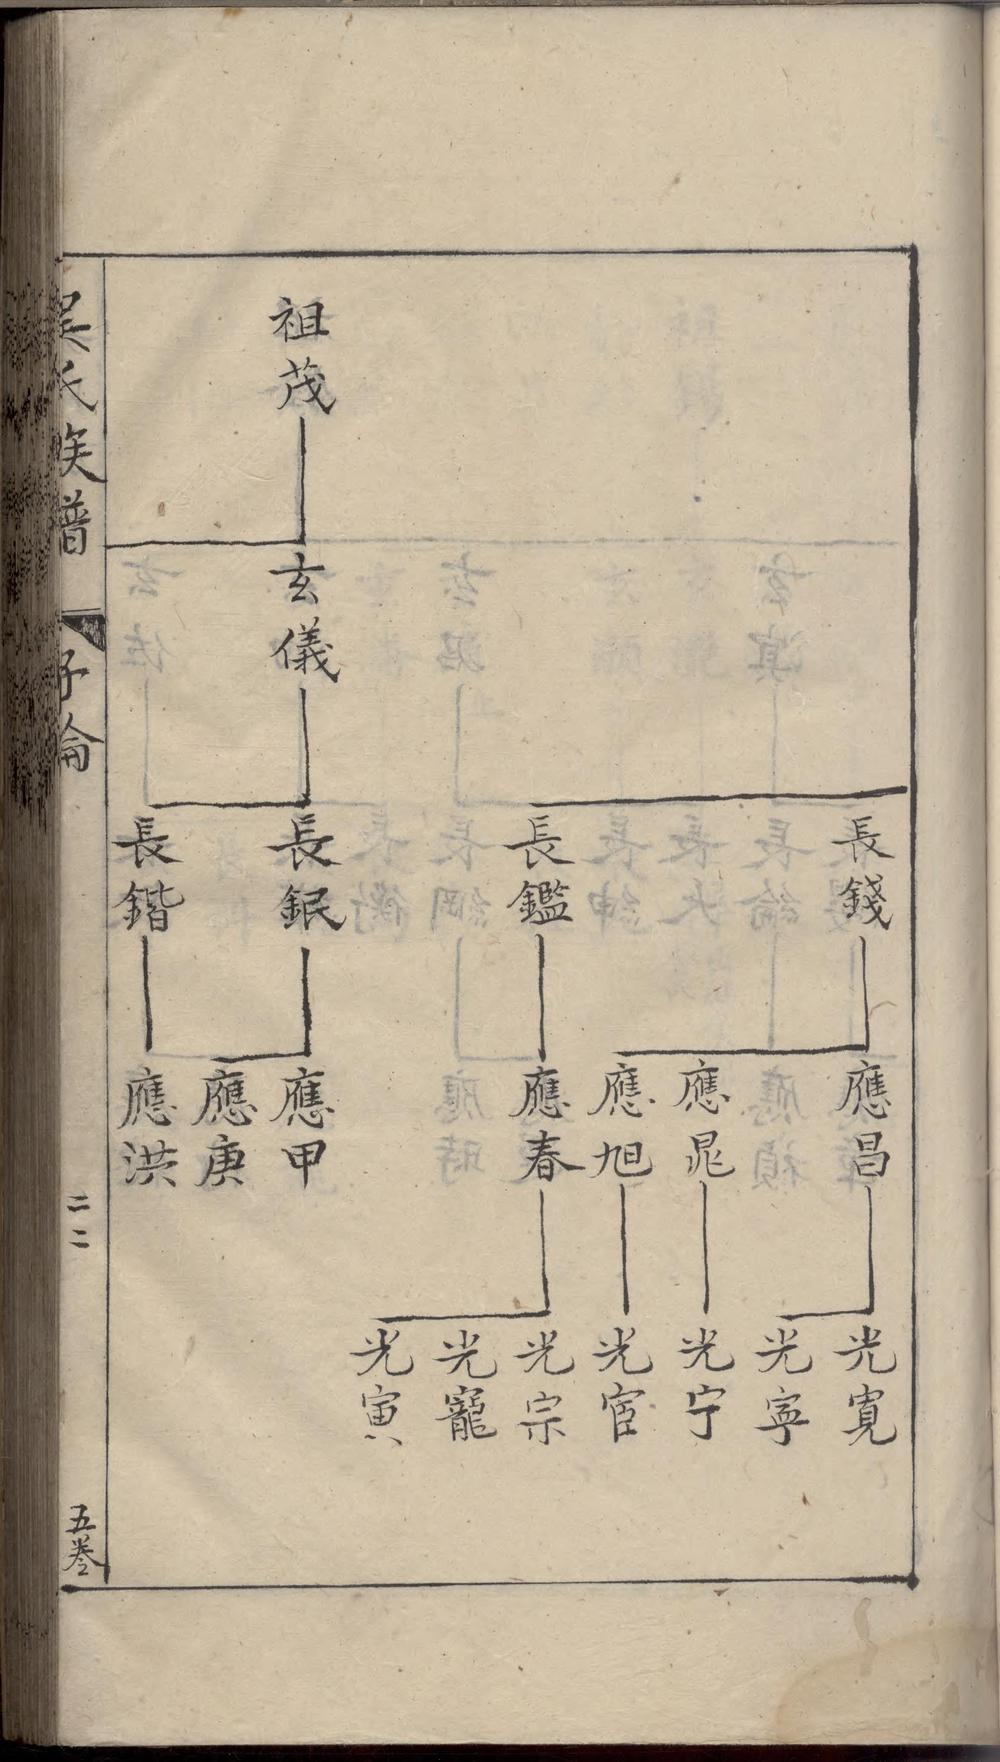 祖茂
玄儀
長錢
長鑑
長鈱
長鍇
應昌
應晁
應旭
應春
應甲
應庚
應洪
光寬
光寧
光宁
光宦
光宗
光寵
光寅
吳氏族譜
子論
二二
五卷